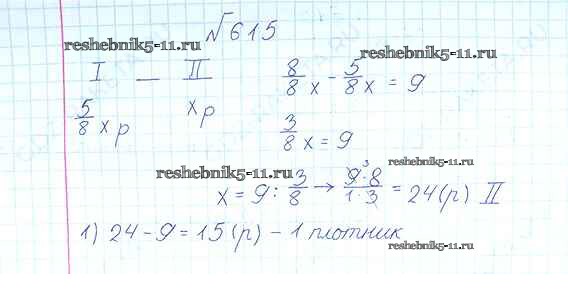 №615
reshebnik5-11.ru
reshebnik5-11.ru
I — II
8/8 x - 5/8 x = 9
5/8 x р
x р
3/8 x = 9
reshebnik5-11.ru
reshebnik5-11.ru
x = 9 : 3/8 → 9³·8/1·3 = 24(р) II
1) 24-9=15(р) - 1 плотник
reshebnik5-11.ru